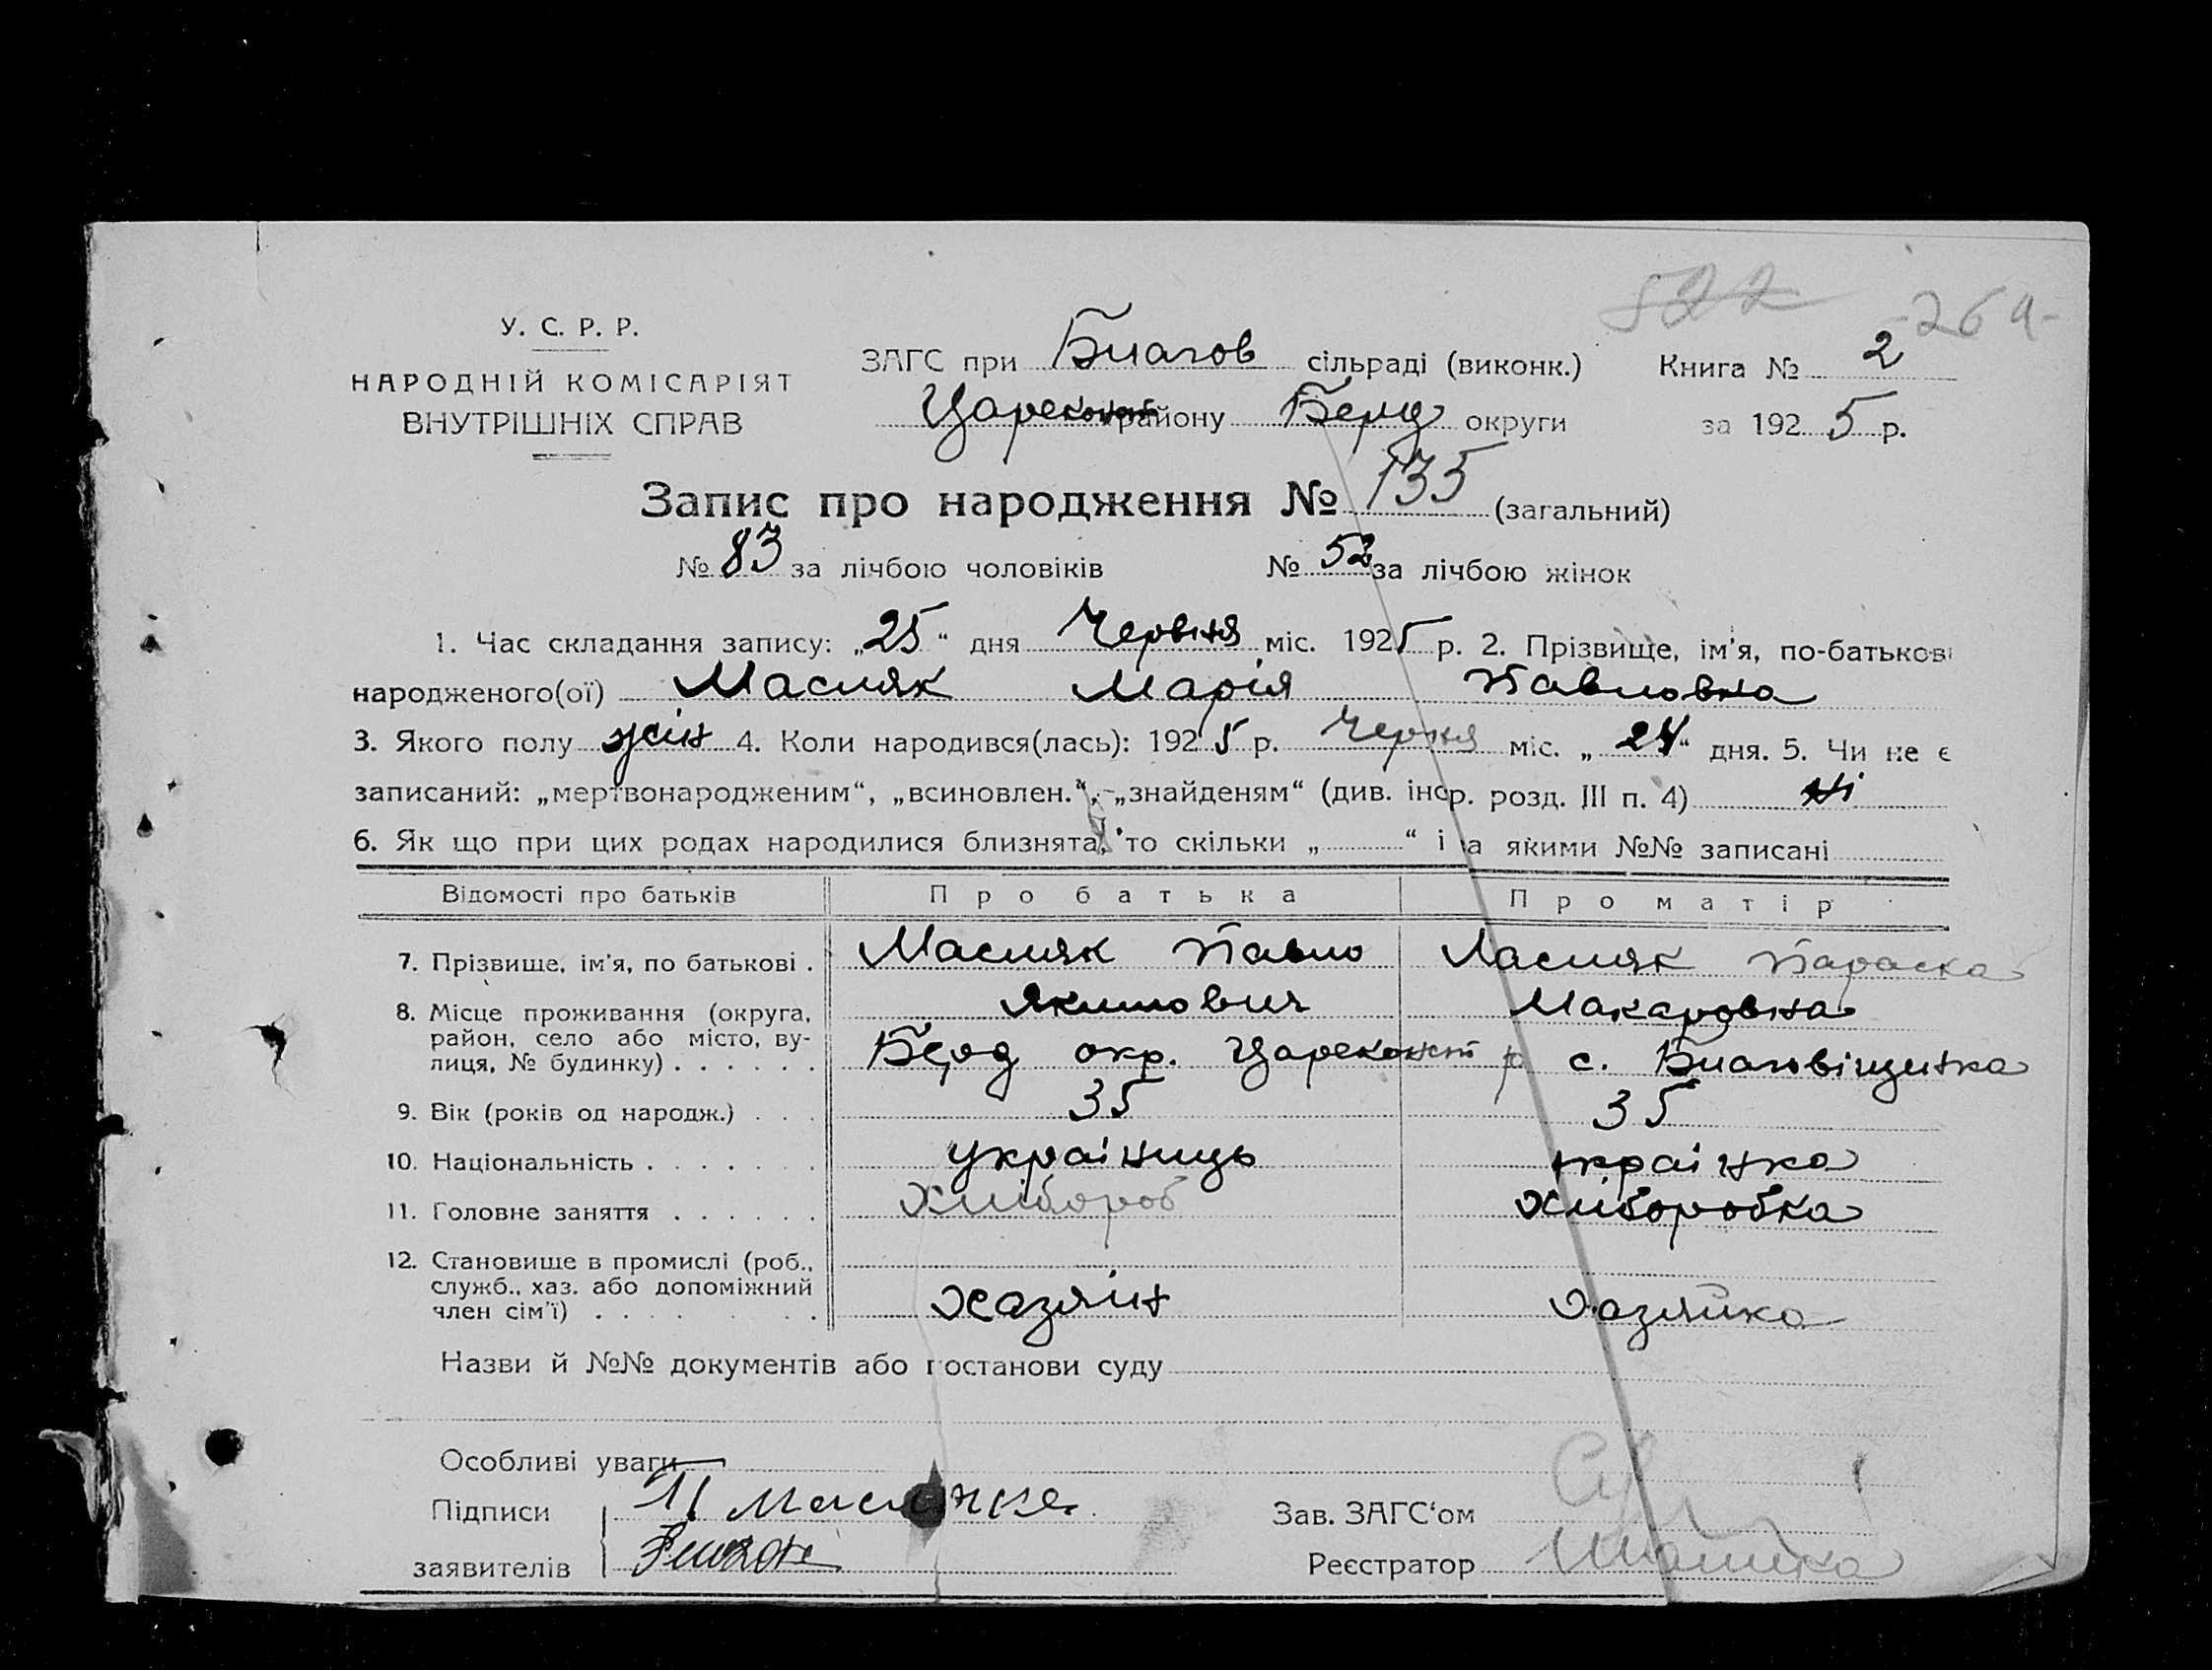 522 -264-
У. С. Р. Р.
НАРОДНІЙ КОМІСАРІЯТ
ВНУТРІШНІХ СПРАВ
ЗАГС при Благов сільраді (виконк.) Книга № 2
Царекон району Берд округи за 1925 р.
Запис про народження № 135 (загальний)
№ 83 за лічбою чоловіків № 52 за лічбою жінок
1. Час складання запису: „25“ дня Червня міс. 1925 р. 2. Прізвище, ім'я, по-батькові
народженого(ої) Масляк Марія Павловна
3. Якого полу жін 4. Коли народився(лась): 1925 р. Черня міс. „24“ дня. 5. Чи не є
записаний: „мертвонародженим“, „всиновлен.“, „знайденям“ (див. інстр. розд. III п. 4) Ні
6. Як що при цих родах народилися близнята, то скільки „ “ і за якими №№ записані
Відомості про батьків Про батька Про матір
7. Прізвище, ім'я, по батькові . Масляк Павло Масляк Параска
Якимович Макаровна
8. Місце проживання (округа,
район, село або місто, ву-
лиця, № будинку) . . . . . . Берд окр. Царекон р с. Благовіщенка
9. Вік (років од народж.) . . . 35 35
10. Національність . . . . . . . українць українка
11. Головне заняття . . . . . . хлібороб хліборобка
12. Становище в промислі (роб.,
служб., хаз. або допоміжний
член сім'ї) . . . . . . хазяїн хазяйка
Назви й №№ документів або постанови суду
Особливі уваги
Підписи П
заявителів
Зав. ЗАГС‘ом
Реєстратор